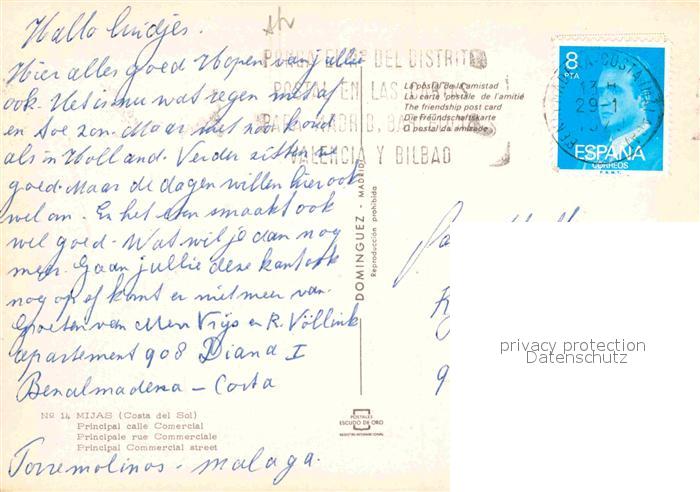 Hallo luidjes.
Hier alles goed Hopen van jullie
ook. Het is nu wat regen met af
en toe zon. Maar niet zoo koud
als in Holland. Verder zitten we
goed. Maar de dagen willen hier ook
wel om. En het eten smaakt ook
wel goed. Wat wil je dan nog
meer. Gaan jullie deze kant ook
nog op of komt er niet meer van.
Groeten van Mevr Vrijs en R. Völlink
apartement 908 Diana I
Benalmadena - Costa
Nº 14 MIJAS (Costa del Sol)
Principal calle Comercial
Principale rue Commerciale
Principal Commercial street
Torremolinos - malaga.
DEL DISTRITO
POSTAL EN LAS
MADRID, BARCELONA
VALENCIA Y BILBAO
La postal de la amistad
La carte postale de l'amitié
The friendship post card
Die Freundschaftskarte
O postal da amizade
DOMINGUEZ - MADRID
Reproducción prohibida
POSTALES
ESCUDO DE ORO
REGISTRO INTERNACIONAL
8
PTA
29-1
ESPAÑA
CORREOS
F.N.M.T.
privacy protection
Datenschutz